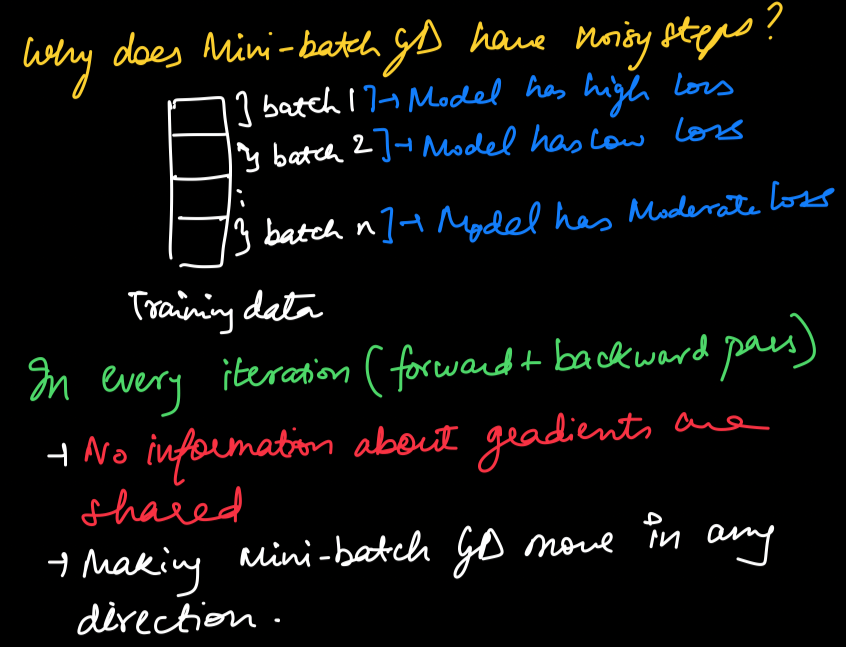 Why does Mini-batch GD have noisy steps?
} batch 1 ] → Model has high loss
} batch 2 ] → Model has low loss
:
} batch n ] → Model has Moderate loss
Training data
In every iteration (forward + backward pass)
→ No information about gradients are
shared
→ Making Mini-batch GD move in any
direction.